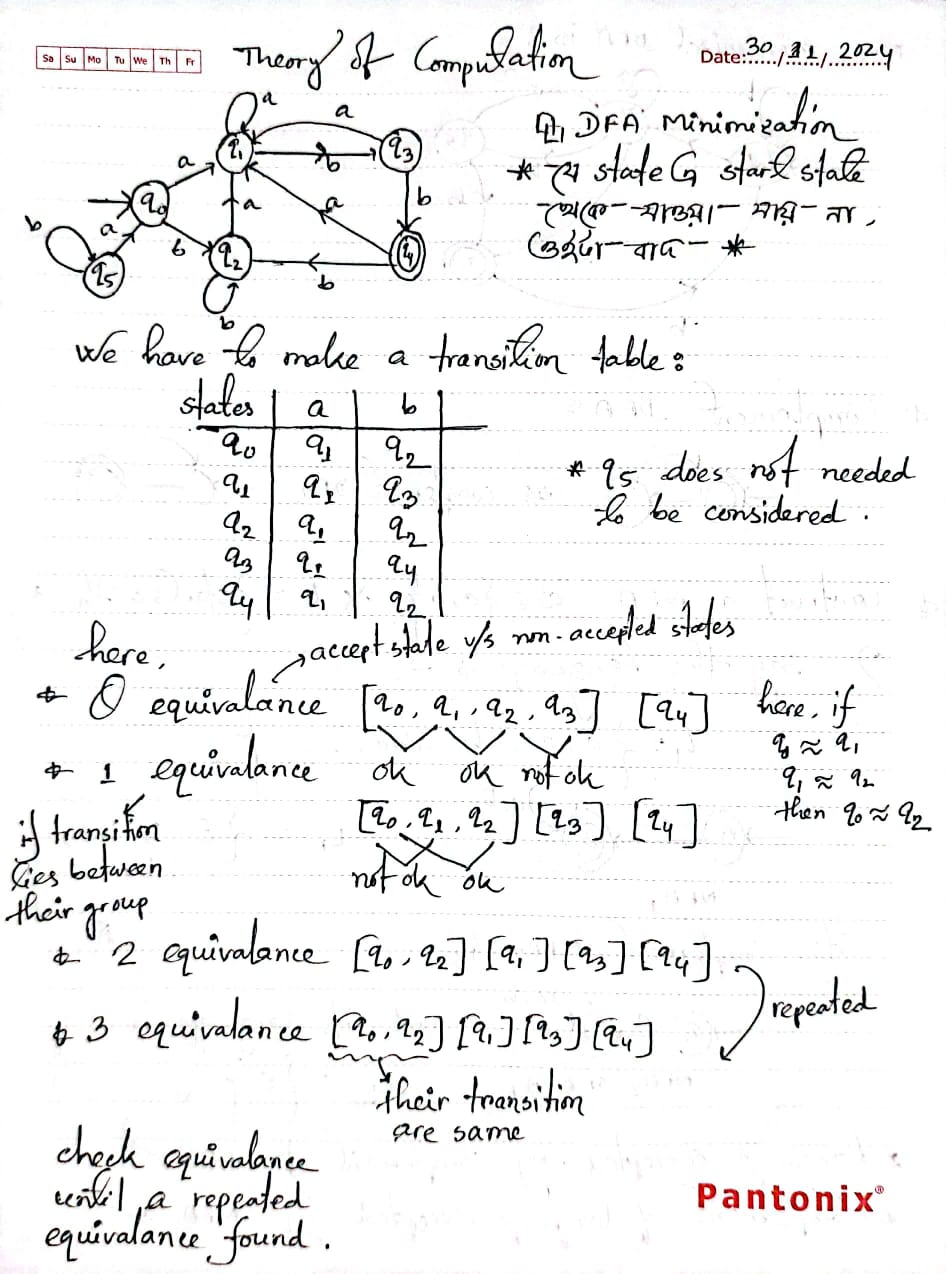 Sa Su Mo Tu We Th Fr
Theory of Computation
Date: 30/11/2024
DFA Minimization
* যে state এ start state
থেকে যাওয়া যায় না,
ওইটা বাদ *
a
a
q1
q3
b
a
b
q0
a
a
b
a
b
q2
q4
q5
b
b
we have to make a transition table:
states a b
q0 q1 q2
q1 q1 q3
q2 q1 q2
q3 q1 q4
q4 q1 q2
* q5 does not needed
to be considered.
here,
accept state v/s non-accepted states
* 0 equivalance [q0, q1, q2, q3] [q4]
here, if
q0 ≈ q1
q1 ≈ q2
then q0 ≈ q2
* 1 equivalance ok ok not ok
[q0, q1, q2] [q3] [q4]
if transition
lies between
their group
not ok ok
* 2 equivalance [q0, q2] [q1] [q3] [q4]
repeated
* 3 equivalance [q0, q2] [q1] [q3] [q4]
their transition
are same
check equivalance
until a repeated
equivalance found.
Pantonix®